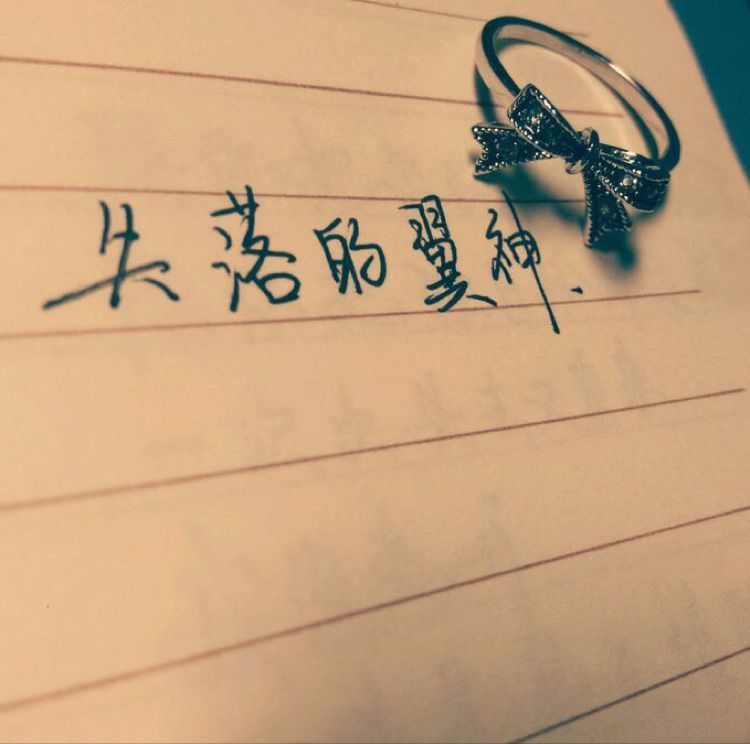 失落的翼神.